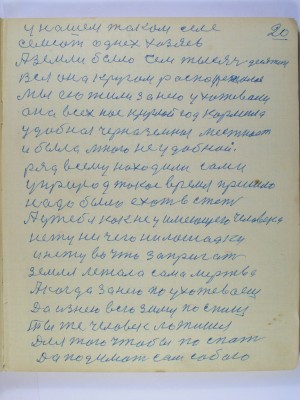 у нашем таком селе 20
семсот однех хозяев
А земли было сем тысяч десятин
Вся она кругом распоряжоная
мы ею жили за нею ухожевали
она всех нас круглой год кормила
удобная черназомная местност
и была много не удобной.
ряд всему находили сами
у природ такое время пришло
надо было ехот в степ
А утебя как не у имеющего человека
нету ни чего ни лошадки
и нету во что запригат
земля лежала сама мертва
А когда за нею поухотеваеш
Да из нею всю зиму по спиш
Ты же человек ложишся
Для того чтобы по спат
Да подимат сам собою